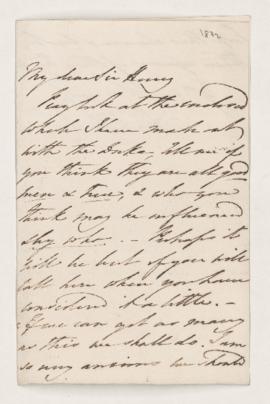 1832
My dear Sir Henry
Pray look at the enclosed
which I have made up
with the Duke - tell me if
you think they are all good
men & true, & who you
think may be influenced
by who. - Perhaps it
will be best if you will
call here when you have
considered it a little. -
If we can get as many
as this we shall do. I am
so very anxious we should